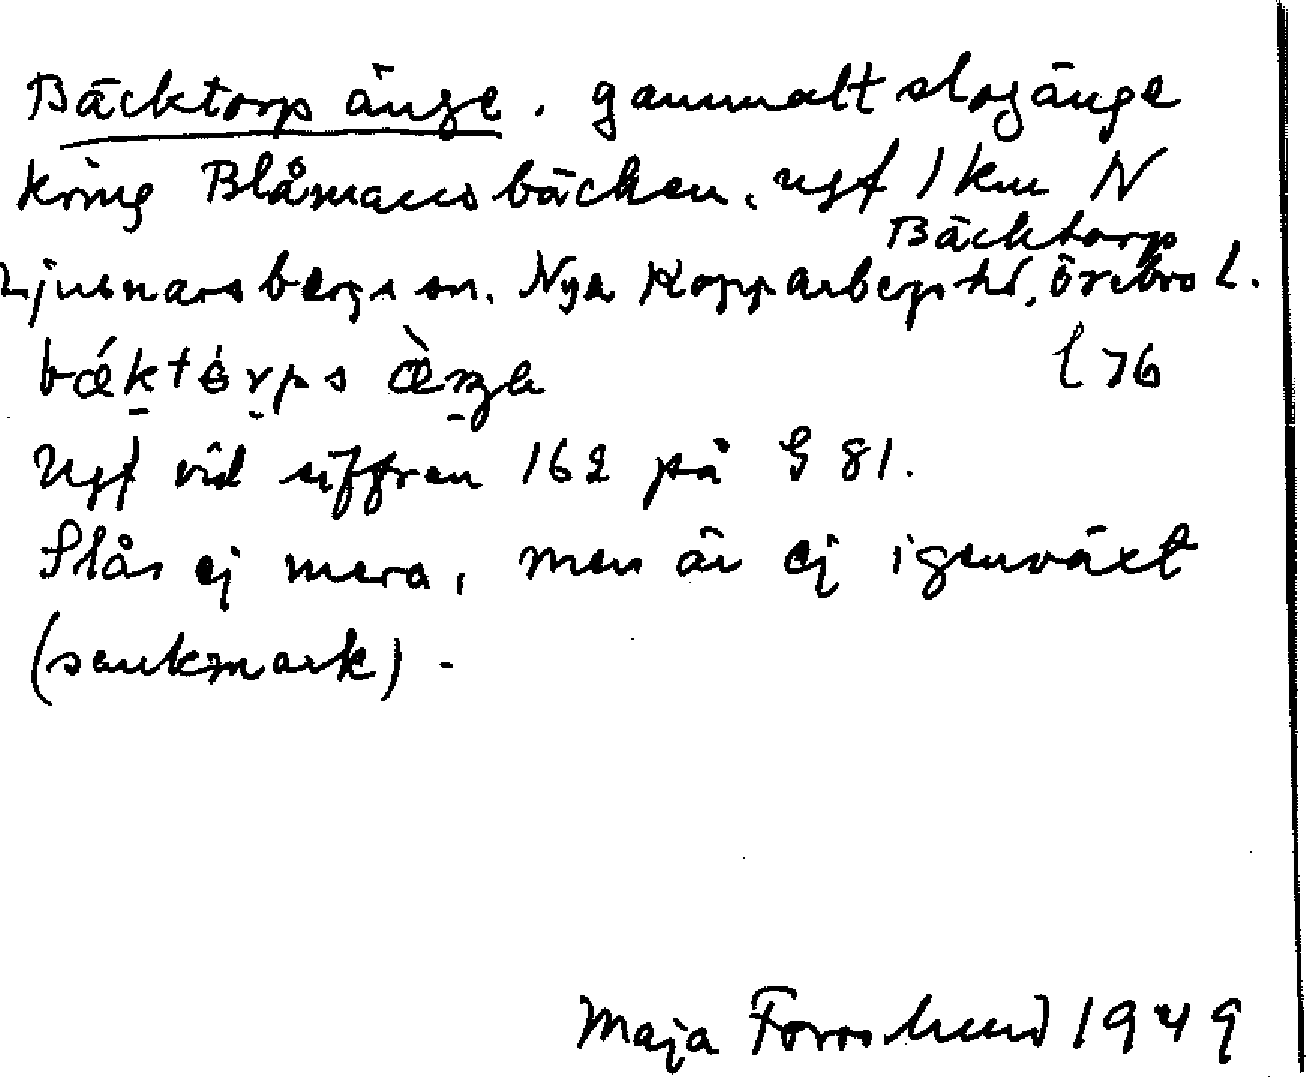 Bäcktorp änge. gammalt slogänge
kring Blåmannsbäcken, ugf 1 km N
Bäcktorp
Ljusnarsbergs sn. Nya Kopparbergs hd, Örebro l.
bǽktòrps æ̀ŋɡe l 76
Ugf vid siffran 162 på G 81.
Slås ej mera, men är ej igenväxt
(sankmark).
Maja Forsslund 1949